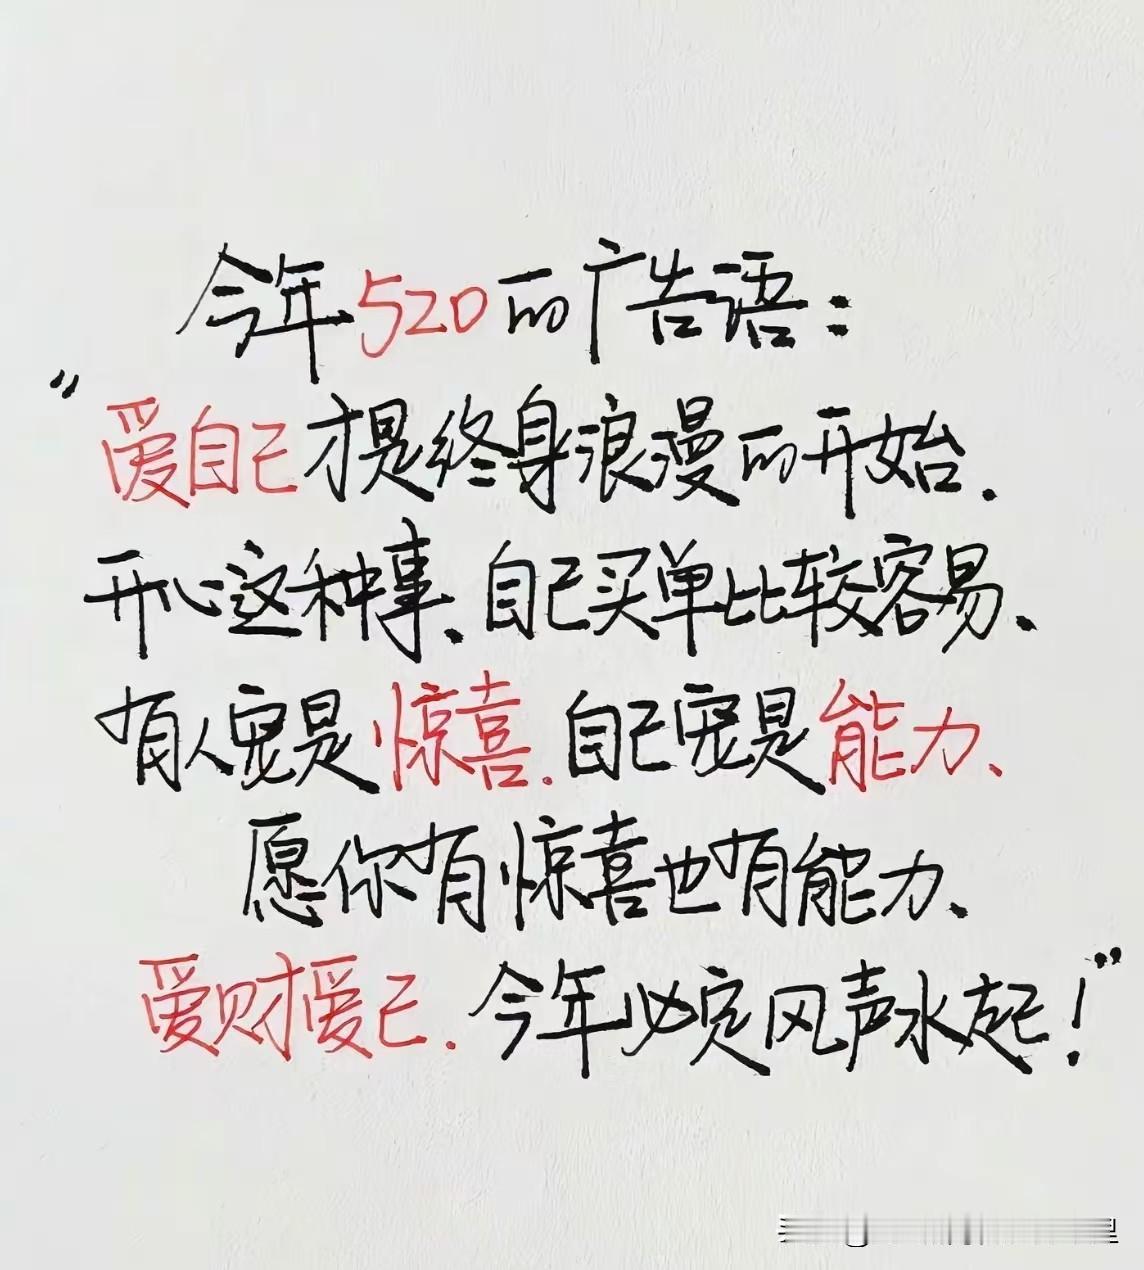 今年520的广告语：
“爱自己才是终身浪漫的开始.
开心这种事、自己买单比较容易、
有人宠是惊喜.自己宠是能力、
愿你有惊喜也有能力、
爱财爱己.今年必定风声水起！”